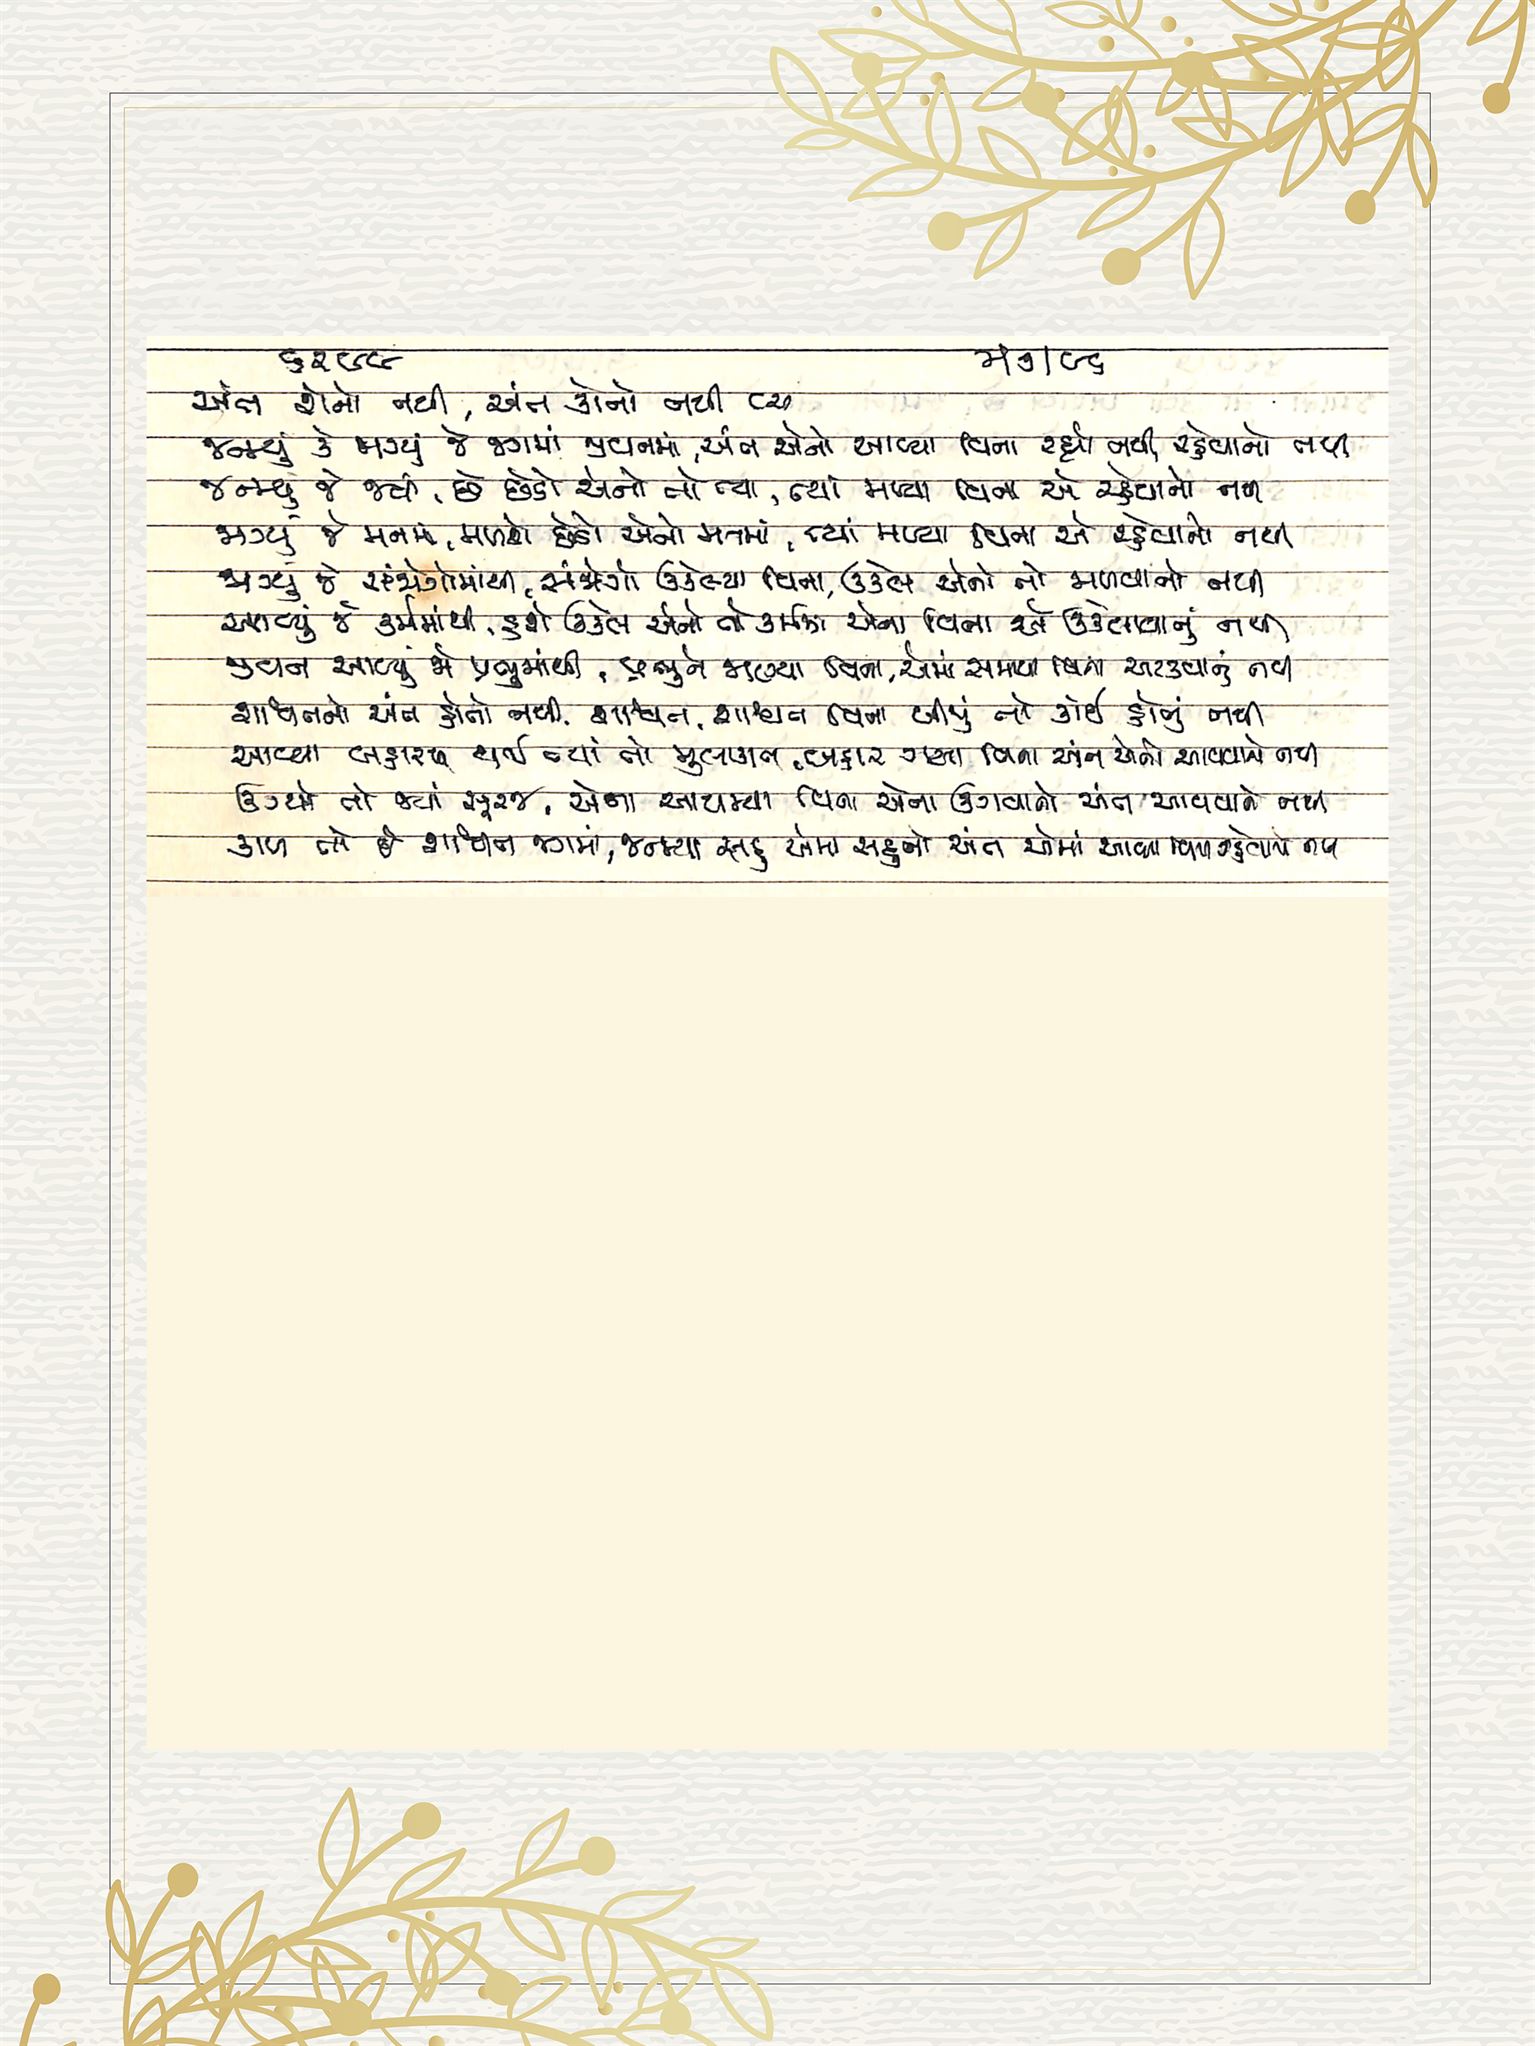 ૬૨૯૮ મે/૭/૮૬
અંત શેનો નથી, અંત કોનો નથી
જનમ્યું કે મળ્યું જે જગમાં જીવનમાં, અંત એનો આવ્યા વિના રહ્યો નથી, રહેવાનો નથી
જનમ્યું જે જ્યાં, છે છેડો એનો તો ત્યાં, ત્યાં મળ્યા વિના એ રહેવાનો નથી
મળ્યું જે મનમાં, મળશે છેડો એનો મનમાં, ત્યાં મળ્યા વિના એ રહેવાનો નથી
મળ્યું જે સંજોગોમાંથી, સંજોગો ઉકેલ્યા વિના, ઉકેલ એનો તો મળવાનો નથી
આવ્યું જે કર્મમાંથી, હશે ઉકેલ એનો તો એના વિના એ ઉકેલાવાનું નથી
જીવન આવ્યું જે પ્રભુમાંથી, પ્રભુને મળ્યા વિના, એમાં સમાયા વિના અટકવાનું નથી
શાશ્વતનો અંત હોતો નથી, શાશ્વત, શાશ્વત વિના બીજું તો કોઈ હોતું નથી
આવ્યા બહારથી થઈ ત્યાં તો મુલાકાત, બહાર ગયા વિના અંત એનો આવવાનો નથી
ઉગ્યો તો જ્યાં સૂરજ, એના આથમ્યા વિના એના ઉગવાનો અંત આવવાનો નથી
કાળ તો છે શાશ્વત જગમાં, જનમ્યા સહુ એમાં સહુનો અંત એમાં આવ્યા વિના રહેવાનો નથી